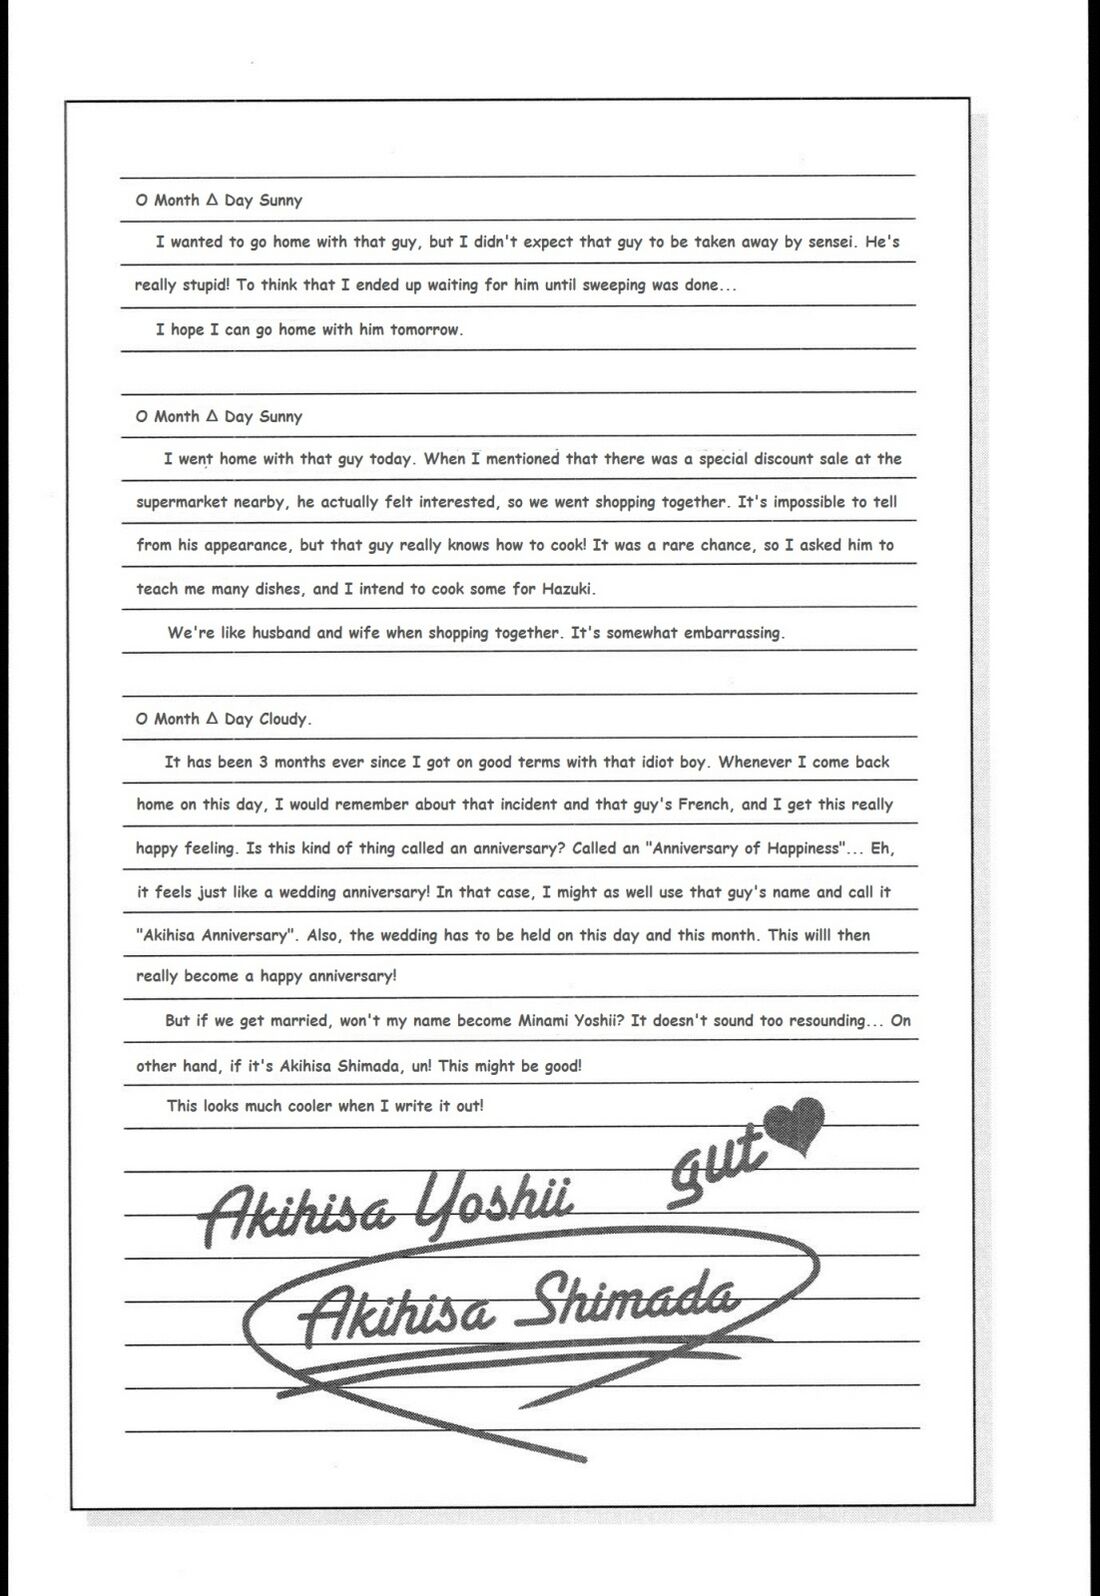 O Month Δ Day Sunny
I wanted to go home with that guy, but I didn't expect that guy to be taken away by sensei. He's
really stupid! To think that I ended up waiting for him until sweeping was done...
I hope I can go home with him tomorrow.
O Month Δ Day Sunny
I went home with that guy today. When I mentioned that there was a special discount sale at the
supermarket nearby, he actually felt interested, so we went shopping together. It's impossible to tell
from his appearance, but that guy really knows how to cook! It was a rare chance, so I asked him to
teach me many dishes, and I intend to cook some for Hazuki.
We're like husband and wife when shopping together. It's somewhat embarrassing.
O Month Δ Day Cloudy.
It has been 3 months ever since I got on good terms with that idiot boy. Whenever I come back
home on this day, I would remember about that incident and that guy's French, and I get this really
happy feeling. Is this kind of thing called an anniversary? Called an "Anniversary of Happiness"... Eh,
it feels just like a wedding anniversary! In that case, I might as well use that guy's name and call it
"Akihisa Anniversary". Also, the wedding has to be held on this day and this month. This willl then
really become a happy anniversary!
But if we get married, won't my name become Minami Yoshii? It doesn't sound too resounding... On
other hand, if it's Akihisa Shimada, un! This might be good!
This looks much cooler when I write it out!
gut♥
Akihisa Yoshii
Akihisa Shimada